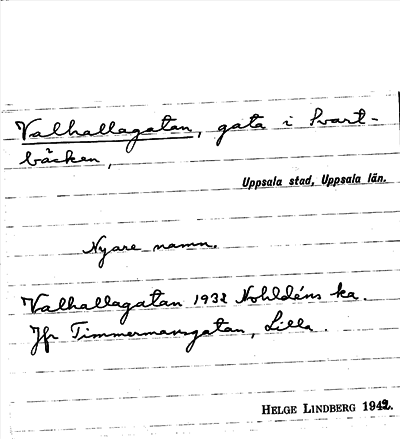 Valhallagatan, gata i Svart-
bäcken,
Uppsala stad, Uppsala län.
Nyare namn.
Valhallagatan 1932 Nohldéns ka.
Jfr Timmermansgatan, Lilla.
HELGE LINDBERG 1942.